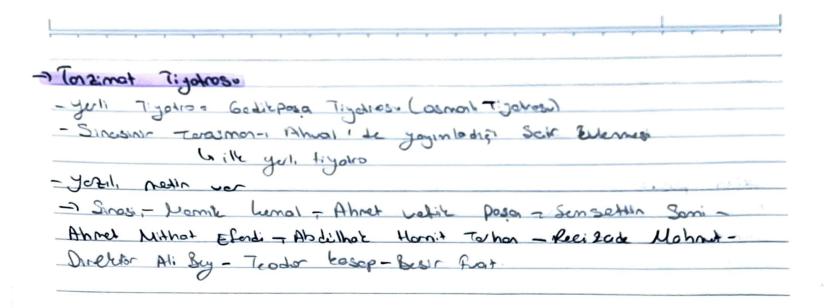 → Tanzimat Tiyatrosu
- Yerli Tiyatro = Gedikpaşa Tiyatrosu (Osmanlı Tiyatrosu)
- Şinasinin Tercüman-ı Ahval'de yayınladığı Şair Evlenmesi
↳ ilk yerli tiyatro
- Yazılı metin var
→ Şinasi - Namık Kemal - Ahmet Vefik Paşa - Şemsettin Sami -
Ahmet Mithat Efendi - Abdülhak Hamit Tarhan - Recizade Mahmut -
Direktör Ali Bey - Teodor Kasap - Beşir Fuat